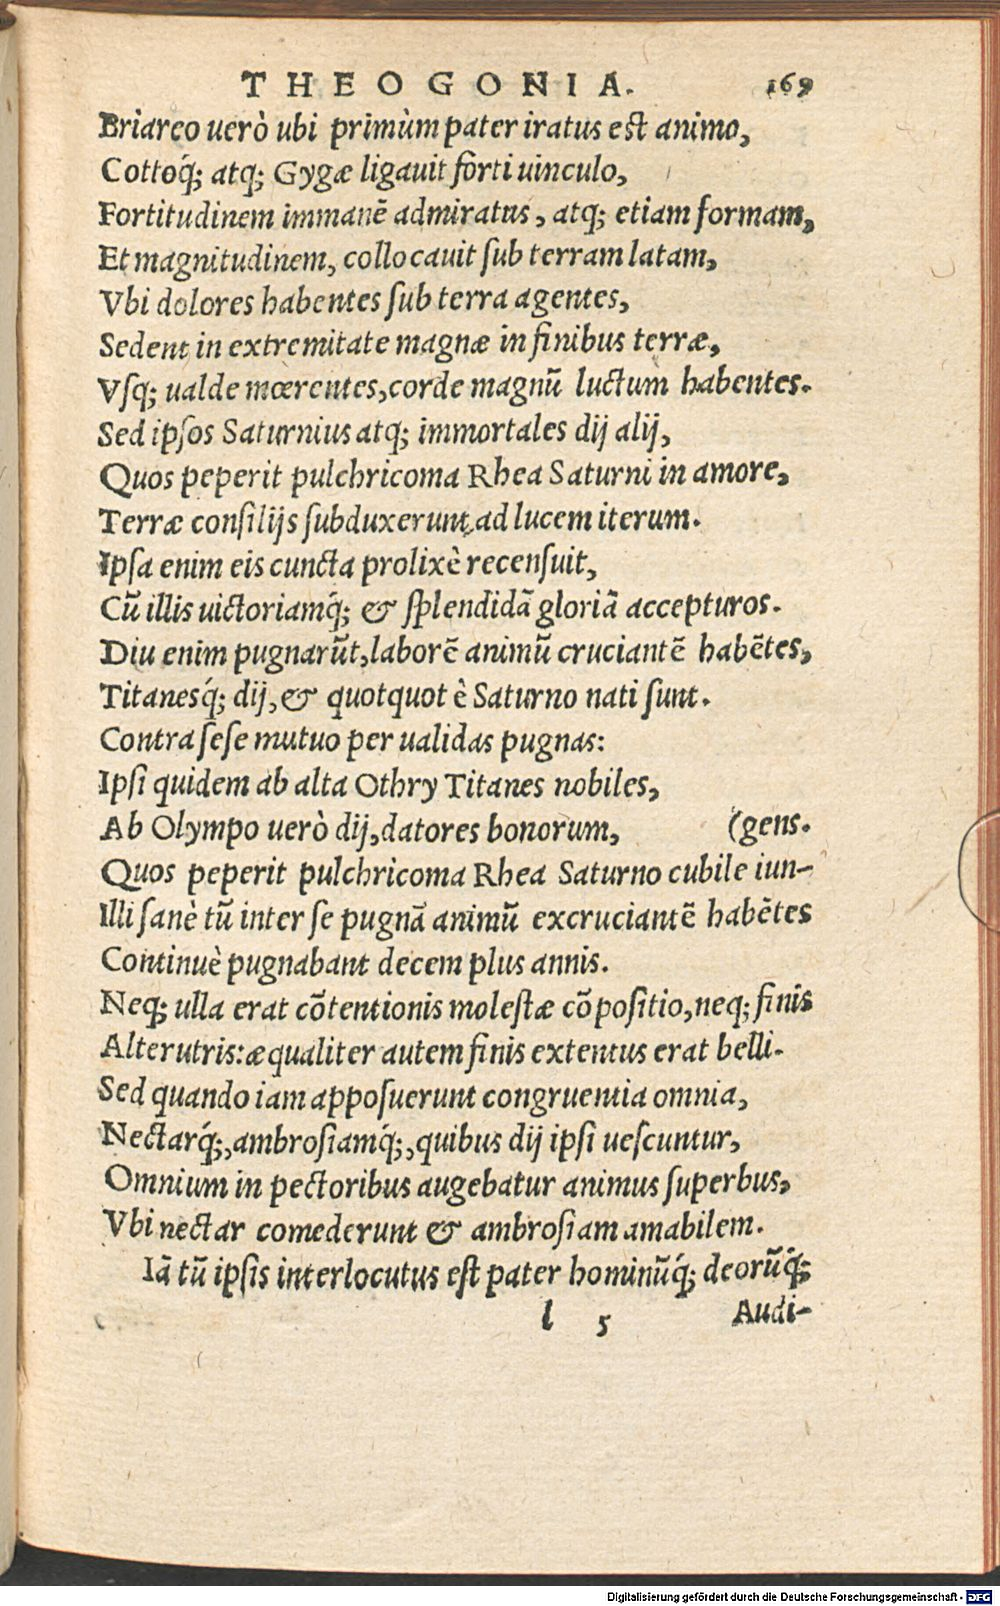 THEOGONIA. 169
Briareo uerò ubi primùm pater iratus est animo,
Cottoq́; atq; Gygæ ligauit forti uinculo,
Fortitudinem immanē admiratus, atq; etiam formam,
Et magnitudinem, collocauit sub terram latam,
Vbi dolores habentes sub terra agentes,
Sedent in extremitate magnæ in finibus terræ,
Vsq; ualde mœrentes, corde magnū luctum habentes.
Sed ipsos Saturnius atq; immortales dij alij,
Quos peperit pulchricoma Rhea Saturni in amore,
Terræ consilijs subduxerunt ad lucem iterum.
Ipsa enim eis cuncta prolixè recensuit,
Cū illis uictoriamq́; & splendidā gloriā accepturos.
Diu enim pugnarūt, laborē animū cruciantē habētes,
Titanesq́; dij, & quotquot è Saturno nati sunt.
Contra sese mutuo per ualidas pugnas:
Ipsi quidem ab alta Othry Titanes nobiles,
Ab Olympo uerò dij, datores bonorum, (gens.
Quos peperit pulchricoma Rhea Saturno cubile iun-
Illi sanè tū inter se pugnā animū excruciantē habētes
Continuè pugnabant decem plus annis.
Neq; ulla erat cōtentionis molestæ cōpositio, neq; finis
Alterutris: æqualiter autem finis extentus erat belli.
Sed quando iam apposuerunt congruentia omnia,
Nectarq́;, ambrosiamq́;, quibus dij ipsi uescuntur,
Omnium in pectoribus augebatur animus superbus,
Vbi nectar comederunt & ambrosiam amabilem.
Iā tū ipsis interlocutus est pater hominūq́; deorūq́;
l 5 Audi-
Digitalisierung gefördert durch die Deutsche Forschungsgemeinschaft - DFG